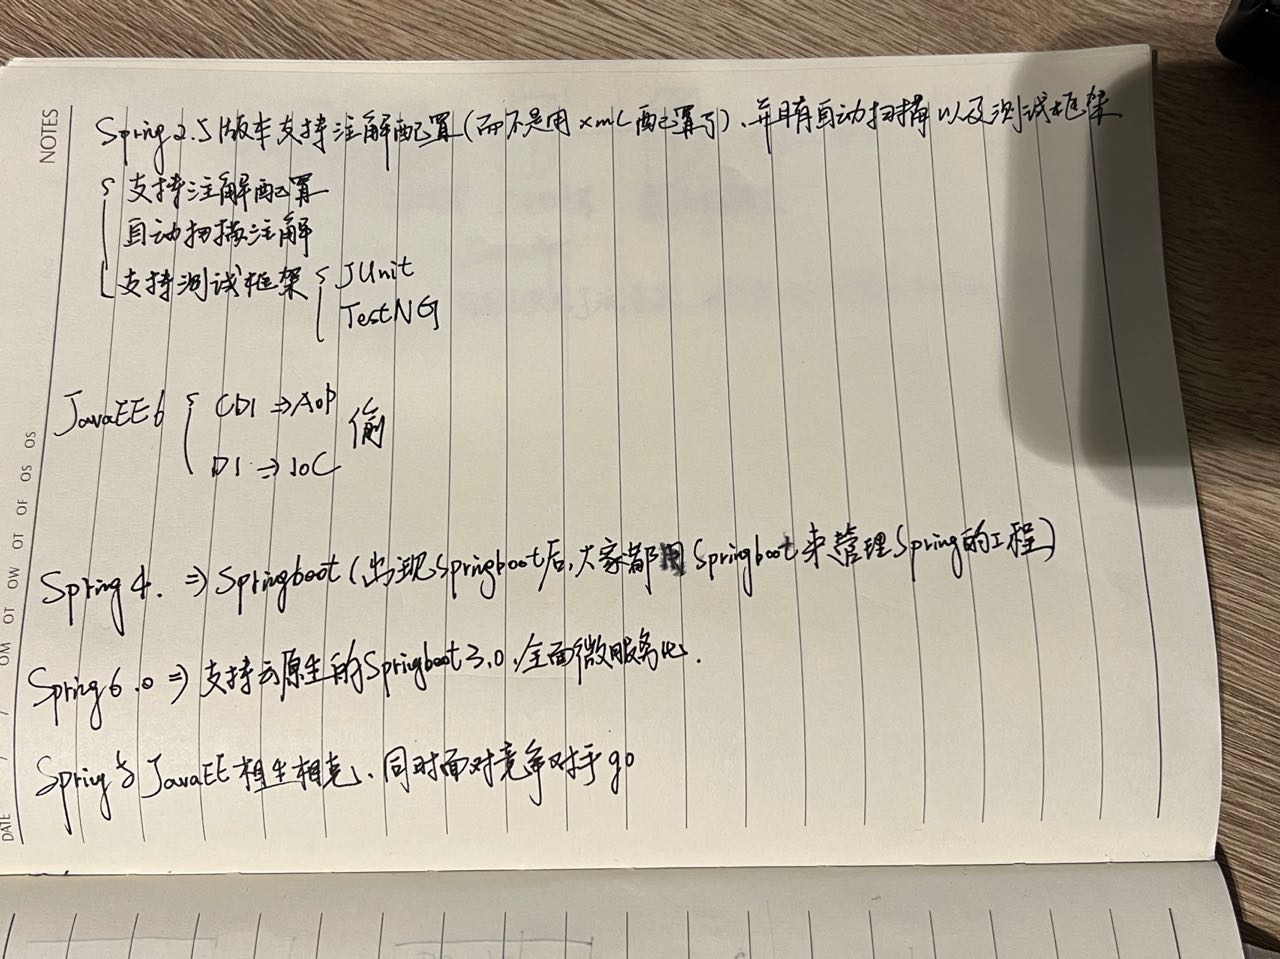 NOTES
Spring2.5版本支持注解配置(而不是用xml配置了)、并且有自动扫描以及测试框架
支持注解配置
自动扫描注解
支持测试框架 JUnit
TestNG
JavaEE6 CDI ⇒ AOP
偷
DI ⇒ IOC
Spring4. ⇒ Springboot(出现Springboot后,大家都用Springboot来管理Spring的工程)
Spring6.0 ⇒ 支持云原生的Springboot3.0,全面微服务化.
Spring与JavaEE相生相克、同时面对竞争对手go
DATE / / MO OT OW OT OF OS OS